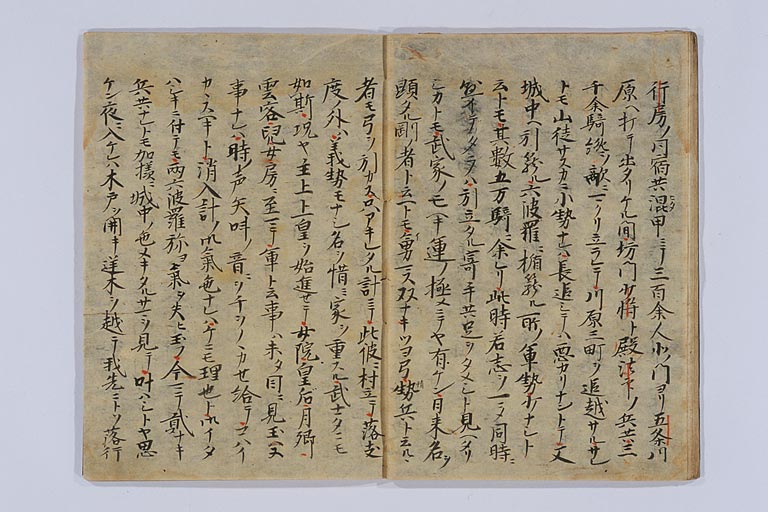 行房ノ内宿共混甲ニテ三百余人小門ヨリ五条川
原ヘ打テ出タリケル間坊門少将ト殿法印ノ兵共三
千余騎終ノ敵ニ一ノリ立ラレテ川原三町ヲ追越サルサレ
トモ山徒サスカ小勢ナレハ長追シテハ悪カリナントテ又
城中ヘ引籠ル六波羅ニ楯籠ル所ノ軍勢少ナシト
云トモ其数五万騎ニ余レリ此時若志ヲ一ニシテ同時ニ
引立タル寄手共足ヲタメシト見ヘタリ
シカトモ武家ノモヘキ運ノ極メニテヤ有ケン日来名ヲ
顕タル剛ノ者ト云トモ勇ニス双ナキツヨ弓勢兵ト云ルヽ
者モ弓ヲ引カス只アキレタル計ニテ此彼ニ村立テ落支
度ノ外ハ義勢モナシ名ヲ惜ミ家ヲ重スル武士タニモ
如斯況ヤ主上上皇ヲ始進セテ女院皇后月卿
雲客児女房ニ至マテ軍ト云事ハ未タ目ニ見玉ハヌ
事ナレハ時声矢叫ノ音ニヲチヲノヽカせ給テコハイ
カヽスヘキト消入計ノ御気色ナレハケニモ理也ト御イタ
ハシキニ付テモ両六波羅弥ヨ気ヲ失ヒ玉フ今マテ貳ナキ
兵共ナレトモ加様ニ城中ノ色メキタルサマヲ見テ叶ハシトヤ思
ケン夜ニ入ケレハ木戸ヲ開キ逆木ヲ越テ我先ニトソ落行